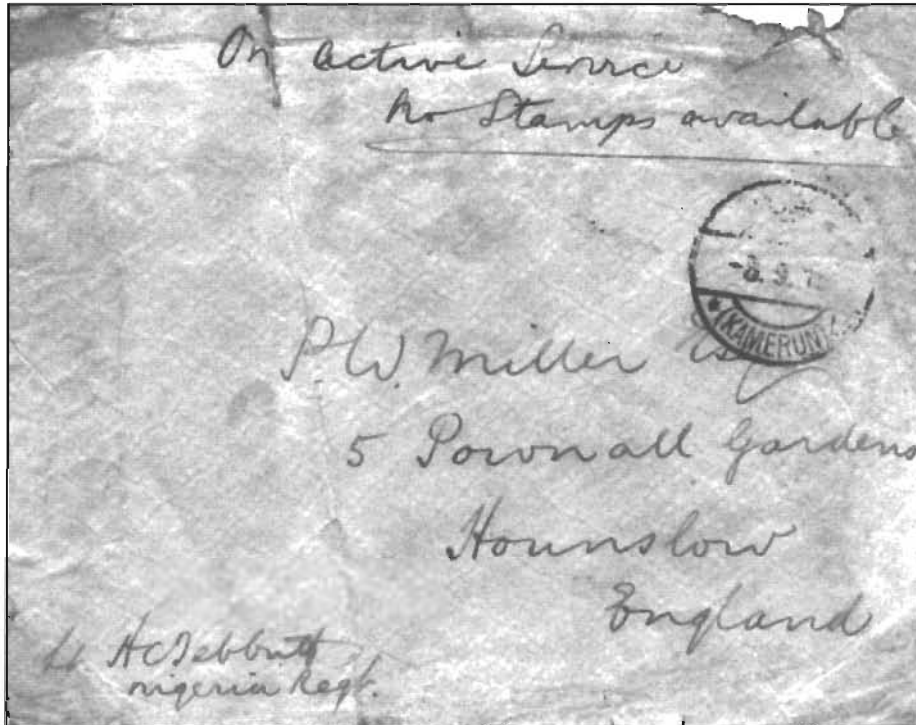 On active Service
No Stamps available
-8.9.1
(KAMERUN)
P.W. Miller Esq
5 Pownall Gardens
Hounslow
England
Lt HC Tebbutt
Nigeria Regt.